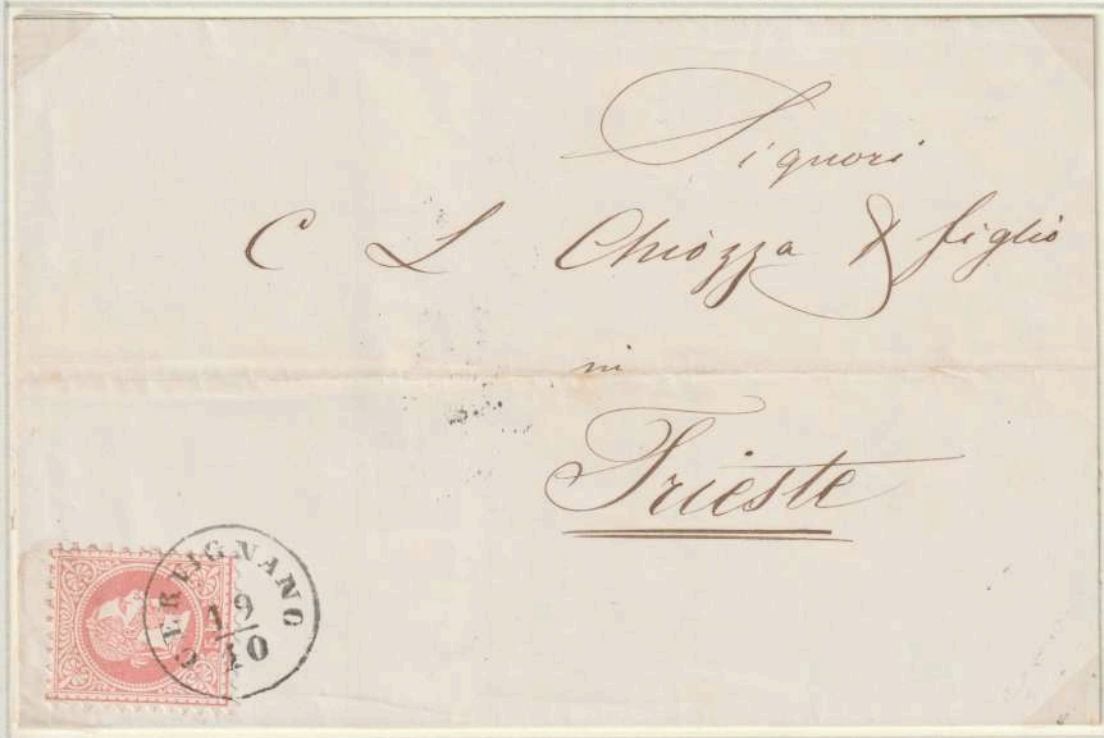 Signori
C L Chiozza & figlio
in
Trieste
CERVIGNANO
19
10